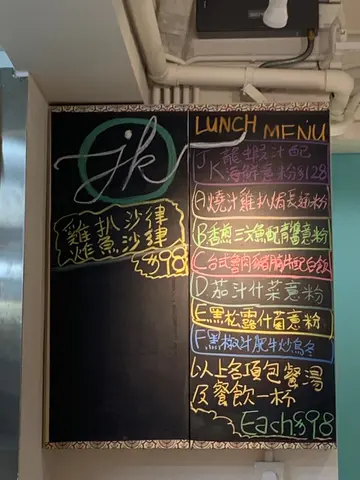 jk
雞扒沙律
炸魚沙律
$98
LUNCH MENU
JK 龍蝦汁配
海鮮意粉$128
A 燒汁雞扒焗長通粉
B 香煎三文魚配青醬意粉
C 台式魯肉
配白飯
D 茄汁什菜意粉
E 黑松露什菌意粉
F 黑椒汁肥牛炒烏冬
以上各項包餐湯
及餐飲一杯
Each $98